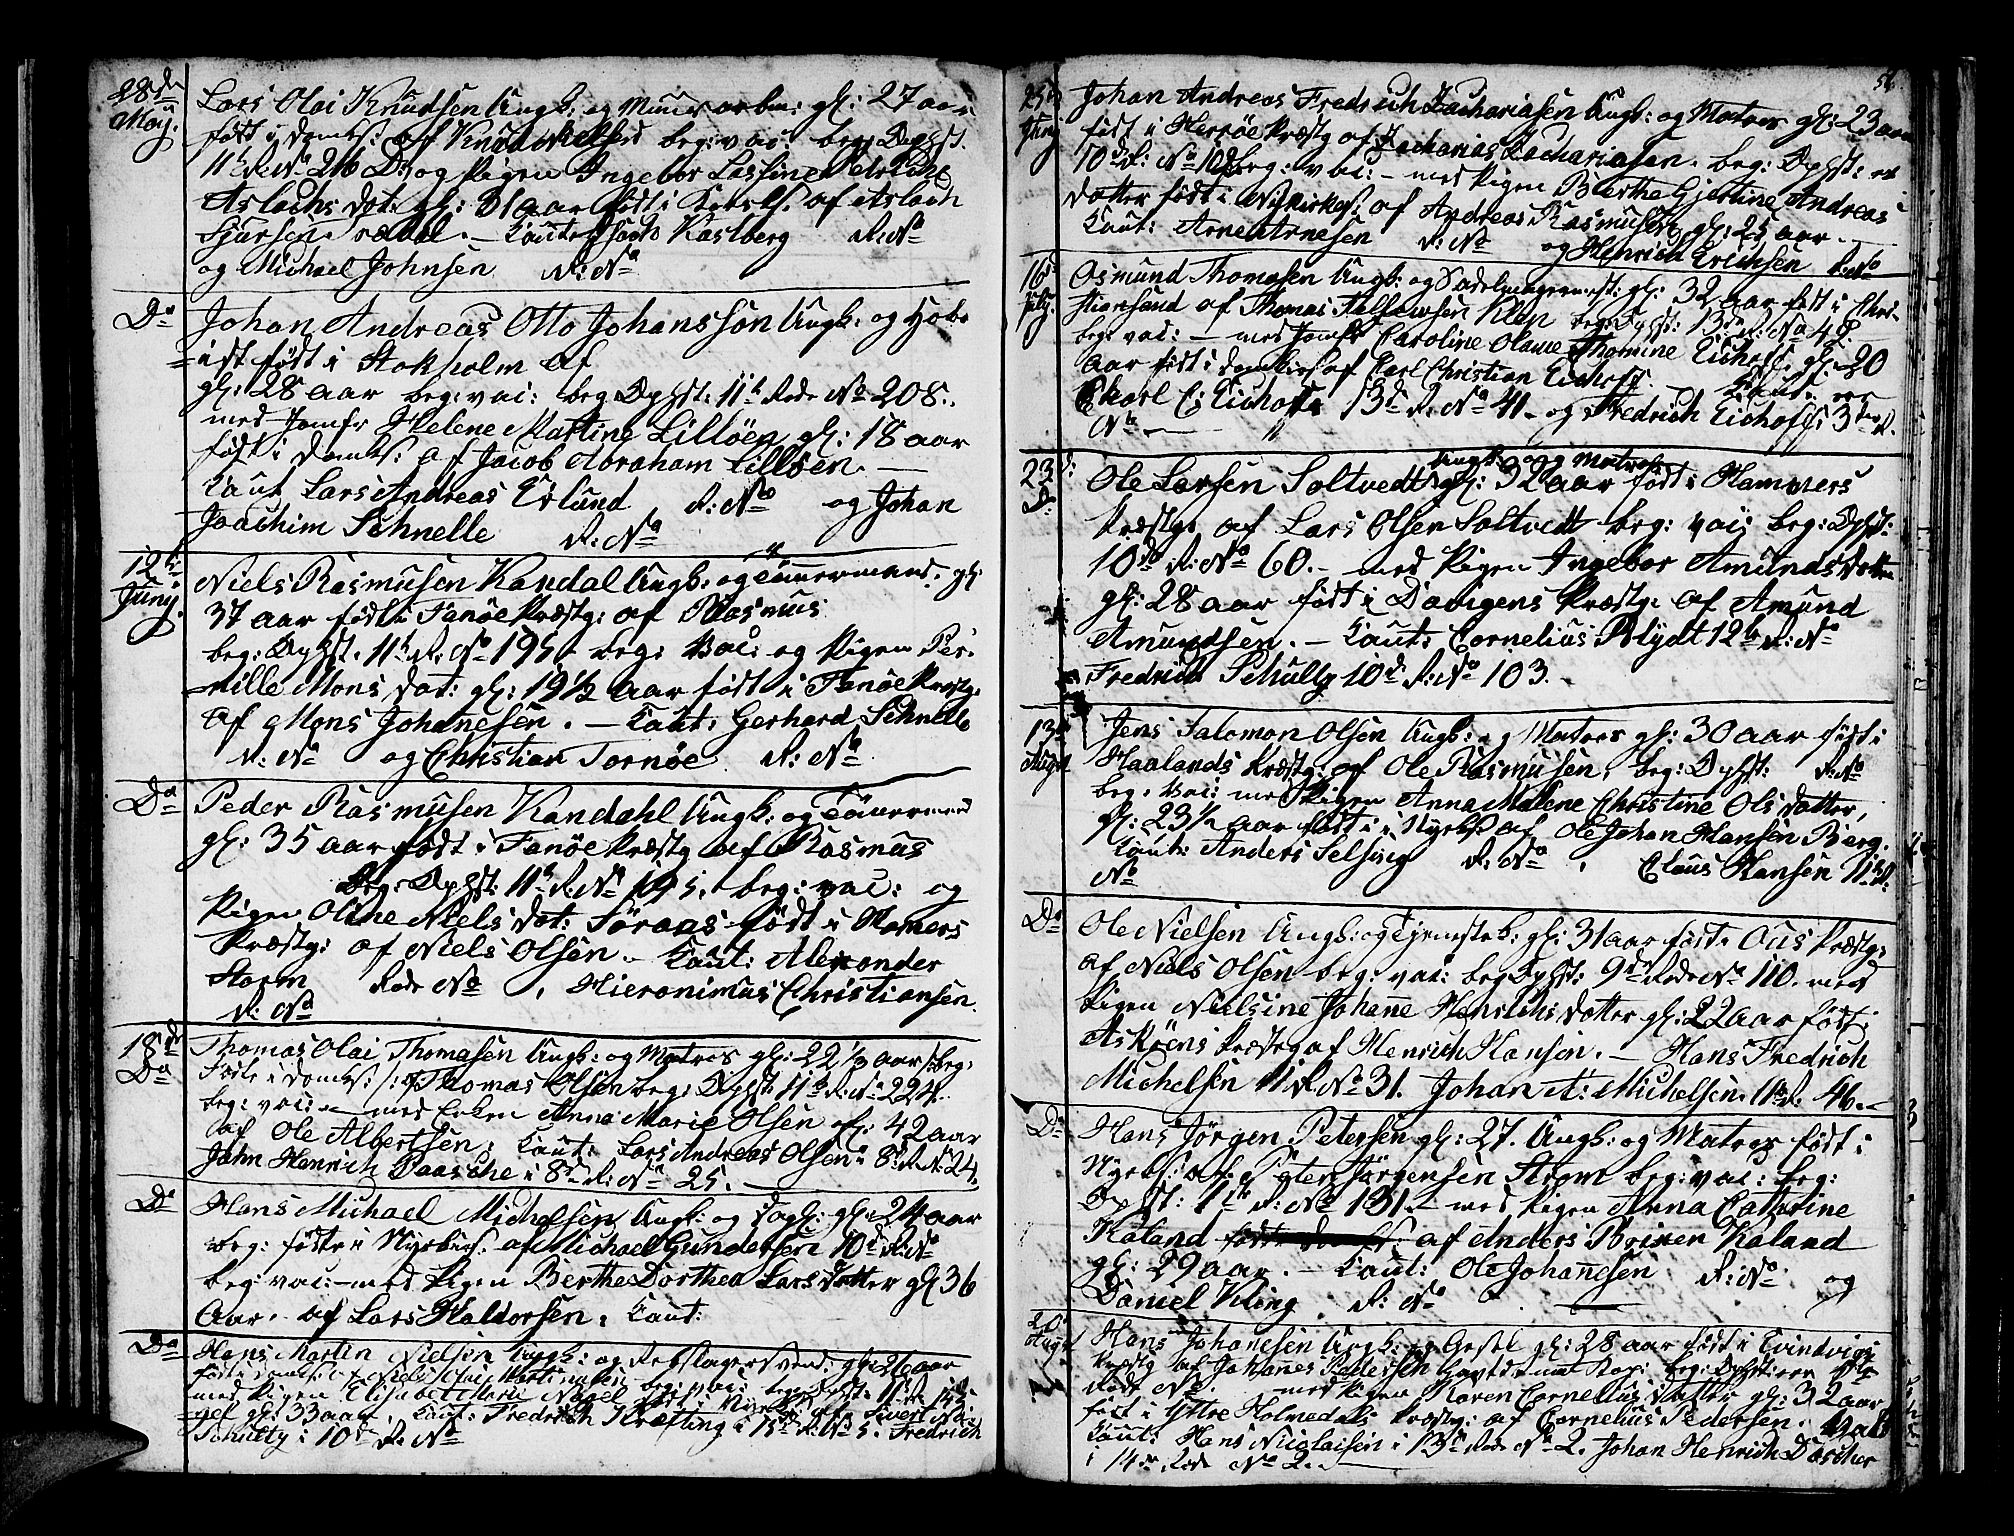 28de Maj.
Lars Olai Knudsen Ungk: og Muurs arbm: gl: 27 aar
født i Domks: af Knud Nielsen beg: vac: beg: Dphst.
11te R: No 216 D: og Pigen Ingebor Lassine
Aslachs Dot: gl: 31 aar født i af Aslach
Sjursen Kaut: Jacob Kastberg R: No
og Michael Johnsen R: No
Do
Johan Andreas Otto Johansson Ungk: og Hobo-
ist født i Stokholm af
gl: 28 aar beg: vac: beg: Dphst: 11te Rode No 208.
med Jomfr Helene Martine Lilløen gl: 18 aar
født i Domks: af Jacob Abraham Lilløen. —
Kaut Lars Andreas Exlund R: No og Johan
Joachim Schnelle R: No
12te Juny.
Niels Rasmusen Kandal Ungk: og Tømmermand. gl:
37 aar født i Fanøe Præstg: af Rasmus
beg: Dphst. 11te R: No 195. beg: Vac: og Pigen Per-
nille Mons Dot: gl: 19 1/2 aar født i Fanøe Præstg:
af Mons Johanesen. — Kaut: Gerhard Schnelle
R: No og Christian Tornøe R: No
Do
Peder Rasmusen Kandahl Ungk: og Tømmermand
gl: 35 aar født i Fanøe Præstg af Rasmus
beg: Dphst: 11te R: No 195. beg: vac: og
Pigen Oline Niels Dot: Söraas født i Hamers
Præstg: af Niels Olsen. — Kaut: Alexander
Storm Rode No , Hieronimus Christiansen
R: No
18de Do
Thomas Olai Thomasen Ungk: og Matros gl: 22 1/2 aar beg:
Føde i Domks: af Thomas Olsen beg: Dphst 11te R: No 224.
beg: vac: — med Enken Anna Marie Olsen gl: 42 aar
af Ole Albertsen, Kaut: Lars Andreas Olsen i 8de R No 24,
Jahn Henrich Paasche i 8de R: No 25. —
Do
Hans Michael Michelsen Ungk: og Dagl: gl: 24 aar
beg: føde i Nykirks: af Michael Gundersen 10de R: No
beg: vac: — med Pigen Berthe Dorthea Lars Datter gl: 36
Aar. af Lars Haldorsen, Kaut:
Do
Hans Martin Nielsen Ungk: og Rebslagersvend: gl: 26 aar
født i Domks: af Niels Martinusen beg: vac: beg: Dphst: 11te R: No
med Pigen Elisabet Marie Nagel født i Nyks: af Sivert Na-
gel gl: 33 aar, Kaut: Fredrich Kræfting i 15de R: No 5. Fredrich
Schultz i 10de R: No
56
25de Juny
Johan Andreas Fredrich Zachariasen Ungk: og Matros gl: 23 aar
født i Herrøe Præstg af Zacharias Zachariasen. beg: Dphst: er
10de R: No 102 beg: vac: — med Pigen Berthe Gjertine Andreas
Datter født i Nykirks: af Andreas Rasmusen gl: 25 aar —
Kaut: Arne Arnesen R: No og Henrich Erichsen R: No
16de July.
Osmund Thomasen Ungk: og Sadelmagermest: gl: 32 aar født i Chri-
stiansand af Thomas Klep beg: Dphst: 13de R: No 48.
beg: vac: — med Jomfr Caroline Olave Thomine Eichoff gl: 20
Aar født i Domkirks af Carl Christian Eichoff. — Kaut: er
Charl C: Eichoff 13de R: No 41. og Fredrich Eichoff i 3de R.
No —
23de Do
Ole Larsen Soltvedt Ungk: og Matros gl: 32 aar født i Hammers
Præstg: af Lars Olsen Soltvedt beg: vac: beg: Dphst:
10de R: No 60. — med Pigen Ingebor Amunds Datter
gl: 28 aar født i Davigens Præstg: af Amund
Amundsen. — Kaut: Cornelius Blydt 12te R: No
Fredrich Schultz 10de R: No 103.
13de August
Jens Salomon Olsen Ungk: og Matros gl: 30 aar født i
Haalands Præstg: af Ole Rasmusen, beg: Dphst: R: No
beg: Vac: med Pigen Anna Malene Christine Ols Datter,
gl: 23 1/2 aar født i Nyeks: af Ole Johan Hansen Berg.
Kaut: Anders Selsvig R: No , Claus Hansen 11te R:
No
Do
Ole Nielsen Ungk: og Tjenestek: gl: 31 aar født i Ous Præstg:
af Niels Olsen beg: vac: beg Dphst: 9de Rode No 110. med
Pigen Nielsine Johanne Henrichs Datter gl: 22 aar født i
Askøens Præstg af Henrich Hansen. — Hans Fredrich
Michelsen 11 R No 31. Johan A: Michelsen. 11te R. 46. —
Do
Hans Jörgen Petersen gl: 27. Ungk: og Matros født i
Nyeks: af Peter Jörgensen Strøm beg: vac: beg:
Dphst: 11te R: No 131. — med Pigen Anna Cathrine
Kaland af Anders Brinen Kaland
gl: 29 aar. — Kaut: Ole Johannesen R: No og
Daniel Kling R: No
20de August
Hans Johanesen Ungk: og Gesel gl: 28 aar født i Evindvigs
Præstg af Johannes Pedersen beg: Dphst: er
Rode No . med Pigen Karen Cornelius Datter gl: 32 aar
født i Yttre Holmedals Præstg: af Cornelius Pedersen.
Kaut: Hans Nicolaisen i 13de Rode No 2. Johan Henrich Döscher
i 14de Rode No 2. —